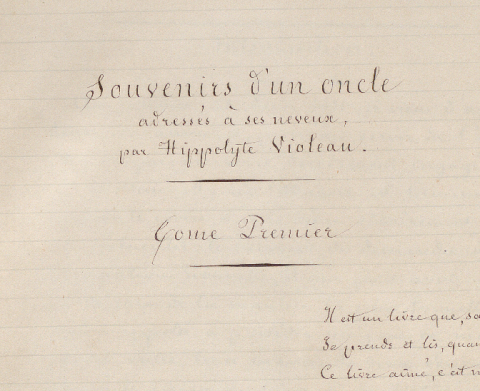 Souvenirs d'un oncle
adressés à ses neveux,
par Hippolyte Violeau.
Tome Premier
Il est un livre que,
Je prends et lis, quan
Ce livre aimé, c'est